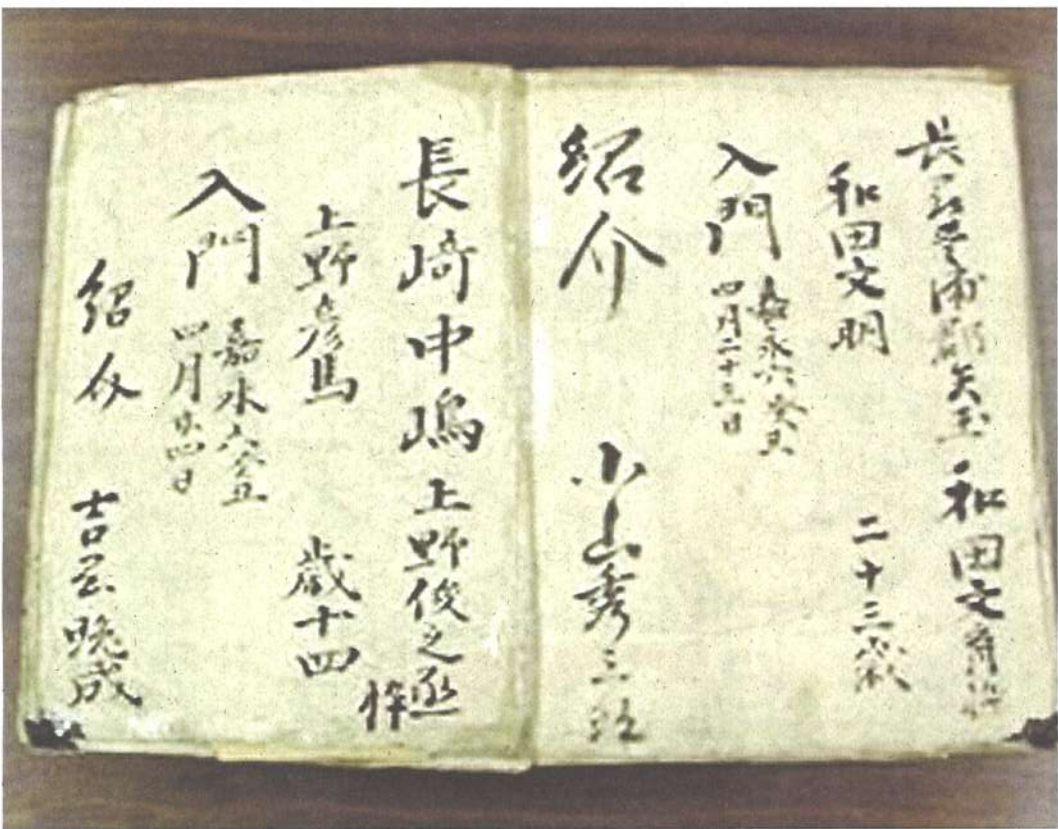 長 浦郡矢玉 和田文
和田文明 二十三歳
入門 嘉永六癸丑
四月二十三日
紹介 小山秀三
長崎中嶋 上野俊之丞 悴
上野彦馬 歳十四
入門 嘉永六癸丑
四月廿四日
紹介 吉 晩成